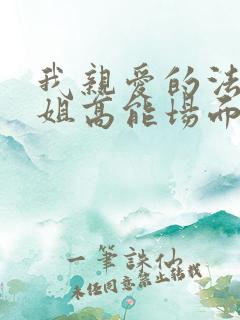 我親愛的法
姐高能場面
一筆誅仙
未经同意禁止转载